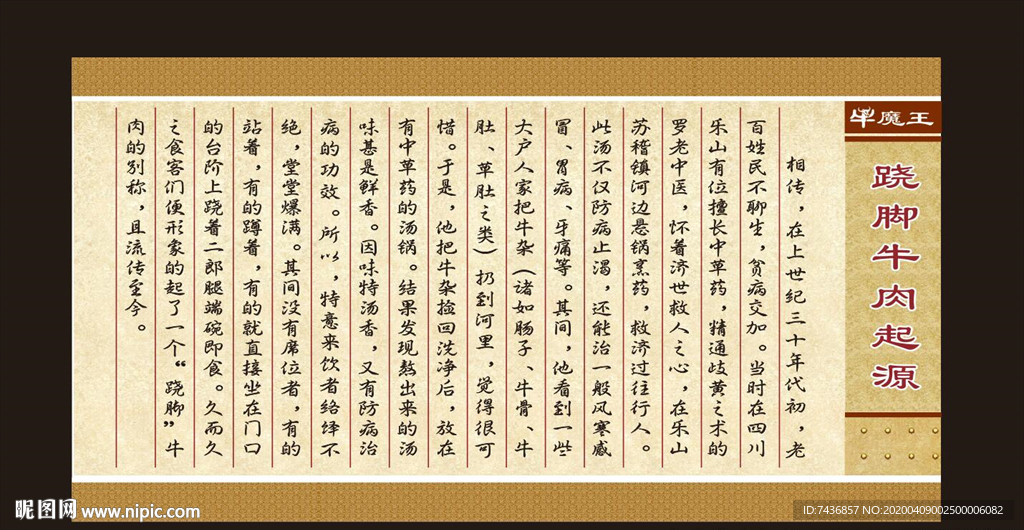 牛魔王
跷脚牛肉起源
相传，在上世纪三十年代初，老
百姓民不聊生，贫病交加。当时在四川
乐山有位擅长中草药，精通歧黄之术的
罗老中医，怀着济世救人之心，在乐山
苏稽镇河边悬锅烹药，救济过往行人。
此汤不仅防病止渴，还能治一般风寒感
冒、胃病、牙痛等。其间，他看到一些
大户人家把牛杂（诸如肠子、牛骨、牛
肚、草肚之类）扔到河里，觉得很可
惜。于是，他把牛杂捡回洗净后，放在
有中草药的汤锅。结果发现熬出来的汤
味甚是鲜香。因味特汤香，又有防病治
病的功效。所以，特意来饮者络绎不
绝，堂堂爆满。其间没有席位者，有的
站着，有的蹲着，有的就直接坐在门口
的台阶上跷着二郎腿端碗即食。久而久
之食客们便形象的起了一个“跷脚”牛
肉的别称，且流传至今。
昵图网 www.nipic.com
ID:7436857 NO:20200409002500006082